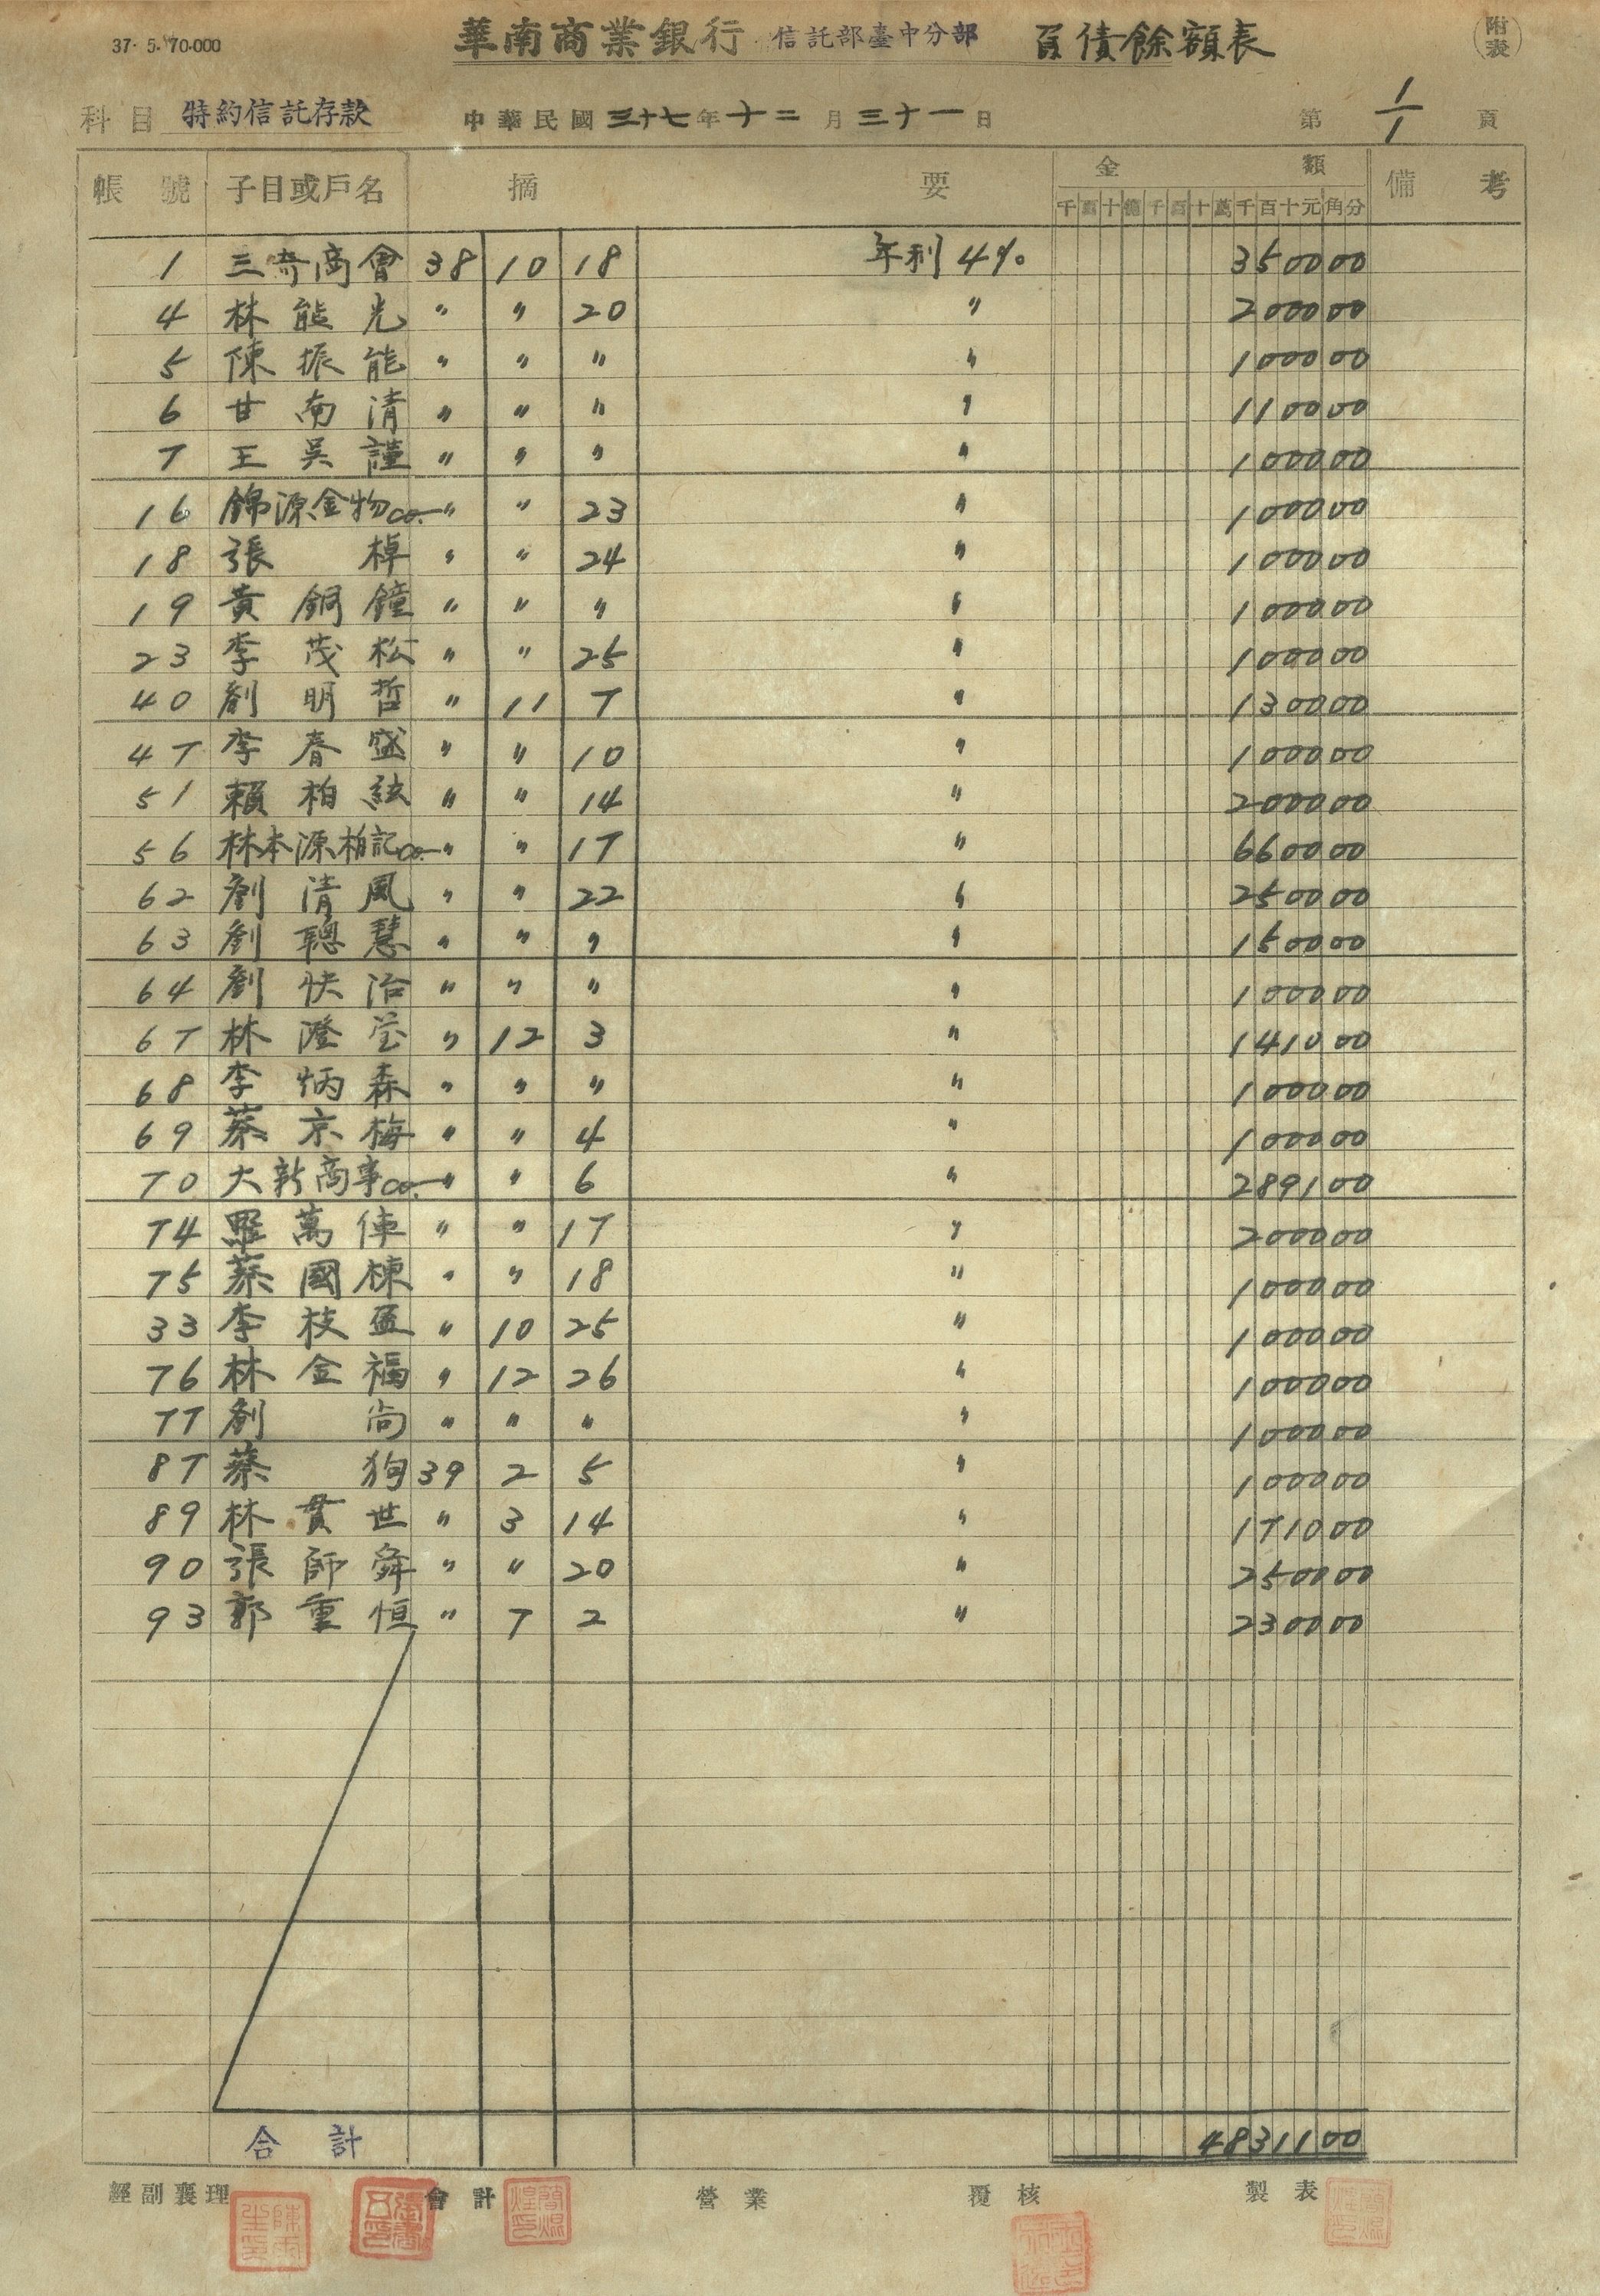 37. 5. 70.000
華南商業銀行 信託部臺中分部 負債餘額表 附表
科目 特約信託存款 中華民國三十七年十二月三十一日 第 1/1 頁
帳號 子目或戶名 摘要 金額 備考
千百十億千百十萬千百十元角分
1 三奇商會 38 10 18 年利 4% 350000
4 林能光 〃 〃 20 〃 200000
5 陳振能 〃 〃 〃 〃 100000
6 甘南清 〃 〃 〃 〃 110000
7 王吳謹 〃 〃 〃 〃 100000
16 錦源金物co. 〃 〃 23 〃 100000
18 張棹 〃 〃 24 〃 100000
19 黃銅鐘 〃 〃 〃 〃 100000
23 李茂松 〃 〃 25 〃 100000
40 劉明哲 〃 11 7 〃 130000
47 李春盛 〃 〃 10 〃 100000
51 賴柏絃 〃 〃 14 〃 200000
56 林本源柏記co. 〃 〃 17 〃 660000
62 劉清風 〃 〃 22 〃 250000
63 劉聰慧 〃 〃 〃 〃 150000
64 劉快治 〃 〃 〃 〃 100000
67 林澄瑩 〃 12 3 〃 141000
68 李炳森 〃 〃 〃 〃 100000
69 蔡京梅 〃 〃 4 〃 100000
70 大新商事co. 〃 〃 6 〃 289100
74 羅萬俥 〃 〃 17 〃 200000
75 蔡國棟 〃 〃 18 〃 100000
33 李枝盈 〃 10 25 〃 100000
76 林金福 〃 12 26 〃 100000
77 劉尚 〃 〃 〃 〃 100000
87 蔡狗 39 2 5 〃 100000
89 林貫世 〃 3 14 〃 171000
90 張師舜 〃 〃 20 〃 250000
93 郭重恒 〃 7 2 〃 230000
合計 4831100
經副襄理 會計 營業 覆核 製表